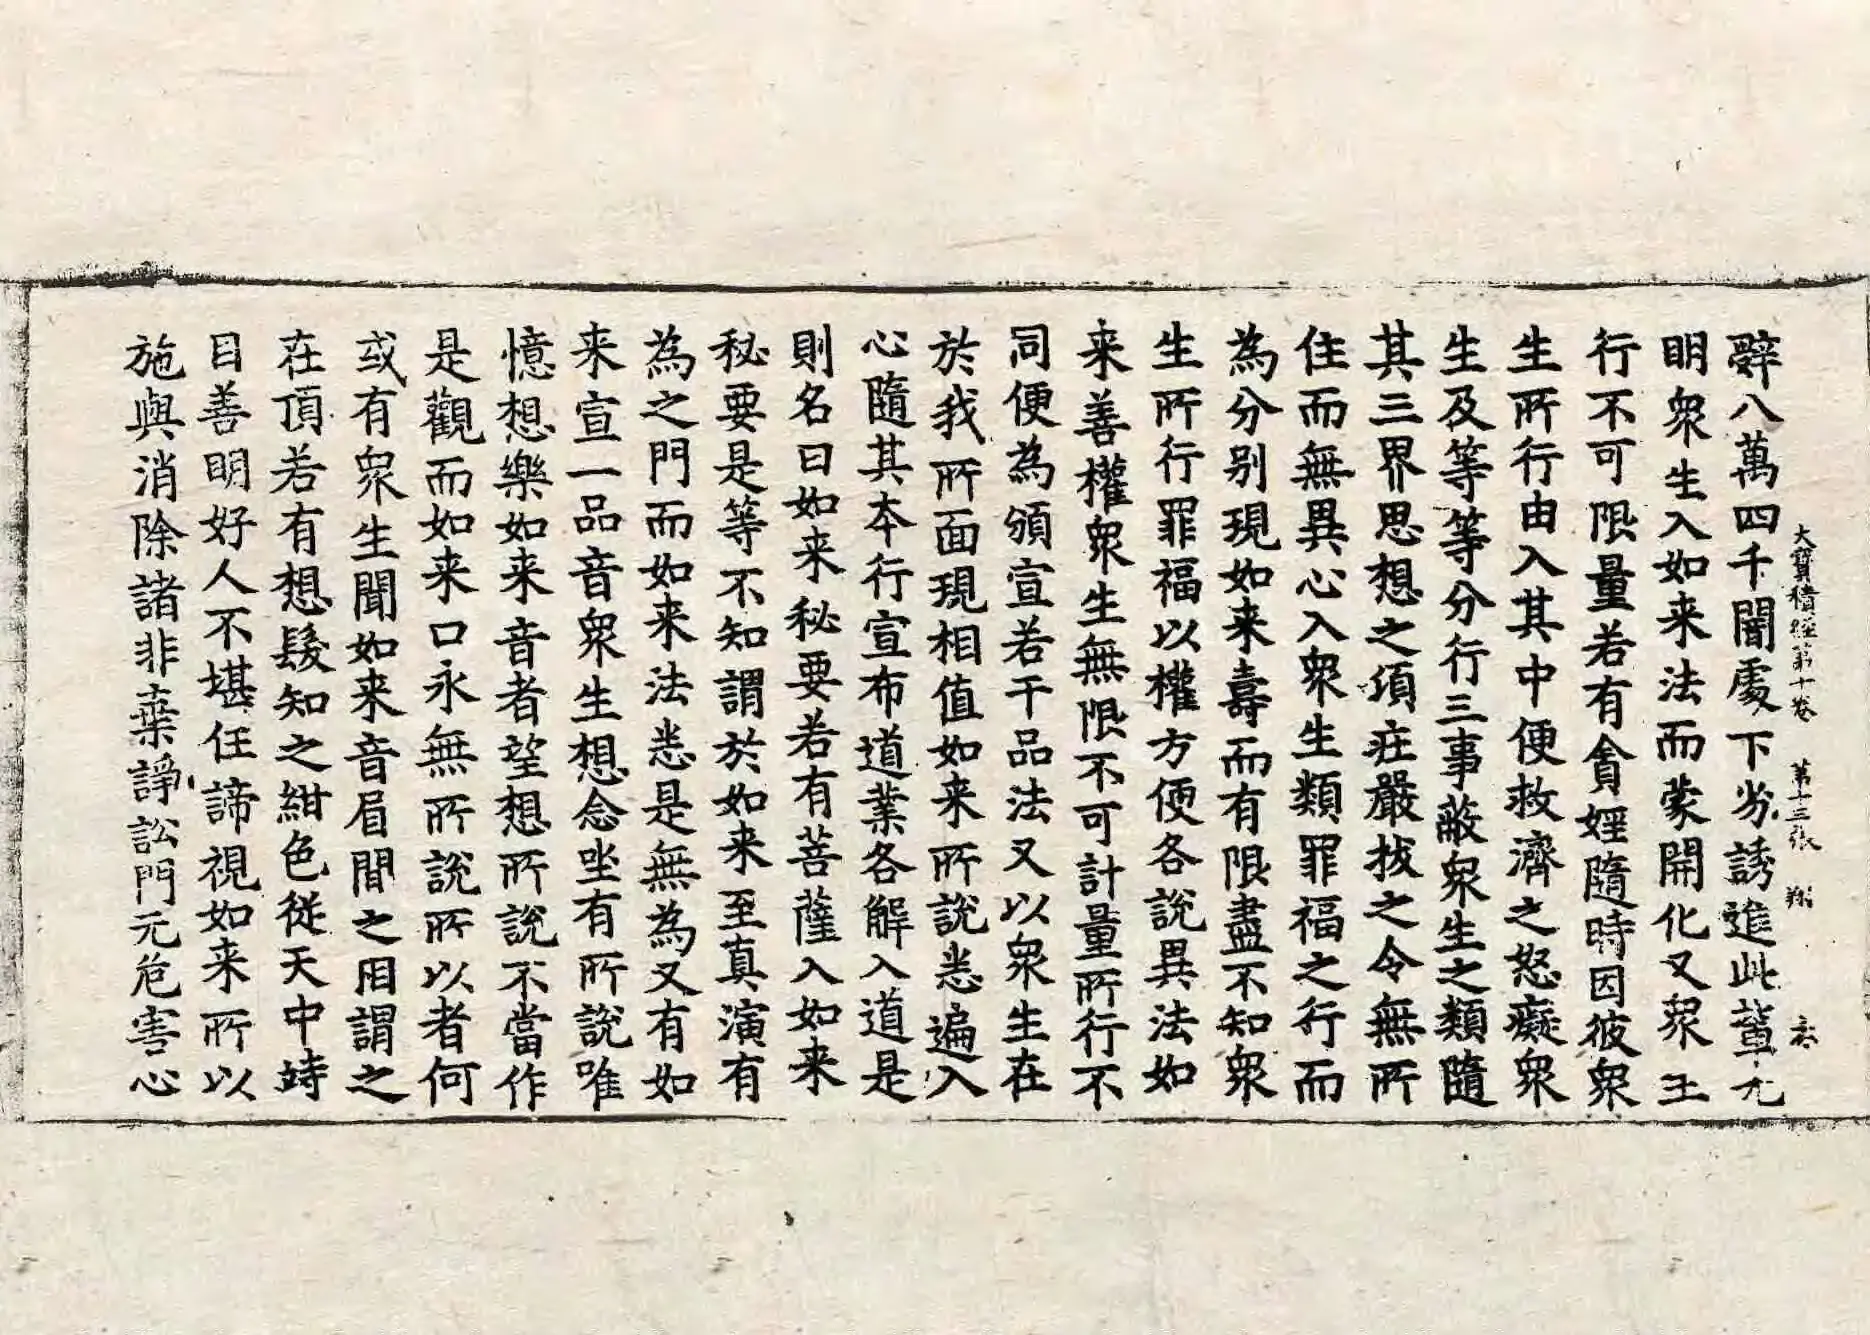 大寶積經第十卷　第十三張　翔
辤八萬四千闇處下劣誘進此輩无
明衆生入如来法而蒙開化又衆生
行不可限量若有貪婬隨時因彼衆
生所行由入其中便救濟之怒癡衆
生及等等分行三事蔽衆生之類隨
其三界思想之須莊嚴拔之令無所
住而無異心入衆生類罪福之行而
為分别現如来壽而有限盡不知衆
生所行罪福以權方便各說異法如
来善權衆生無限不可計量所行不
同便為頒宣若干品法又以衆生在
於我所面現相值如来所說悉遍入
心隨其本行宣布道業各解入道是
則名曰如来秘要若有菩薩入如来
秘要是等不知謂於如来至真演有
為之門而如来法悉是無為又有如
来宣一品音衆生想念唑有所說唯
憶想樂如来音者望想所說不當作
是觀而如来口永無所說所以者何
或有衆生聞如来音眉間之相謂之
在頂若有想髮知之紺色従天中峙
目善明好人不堪任諦視如来所以
施與消除諸非棄諍訟門元危害心